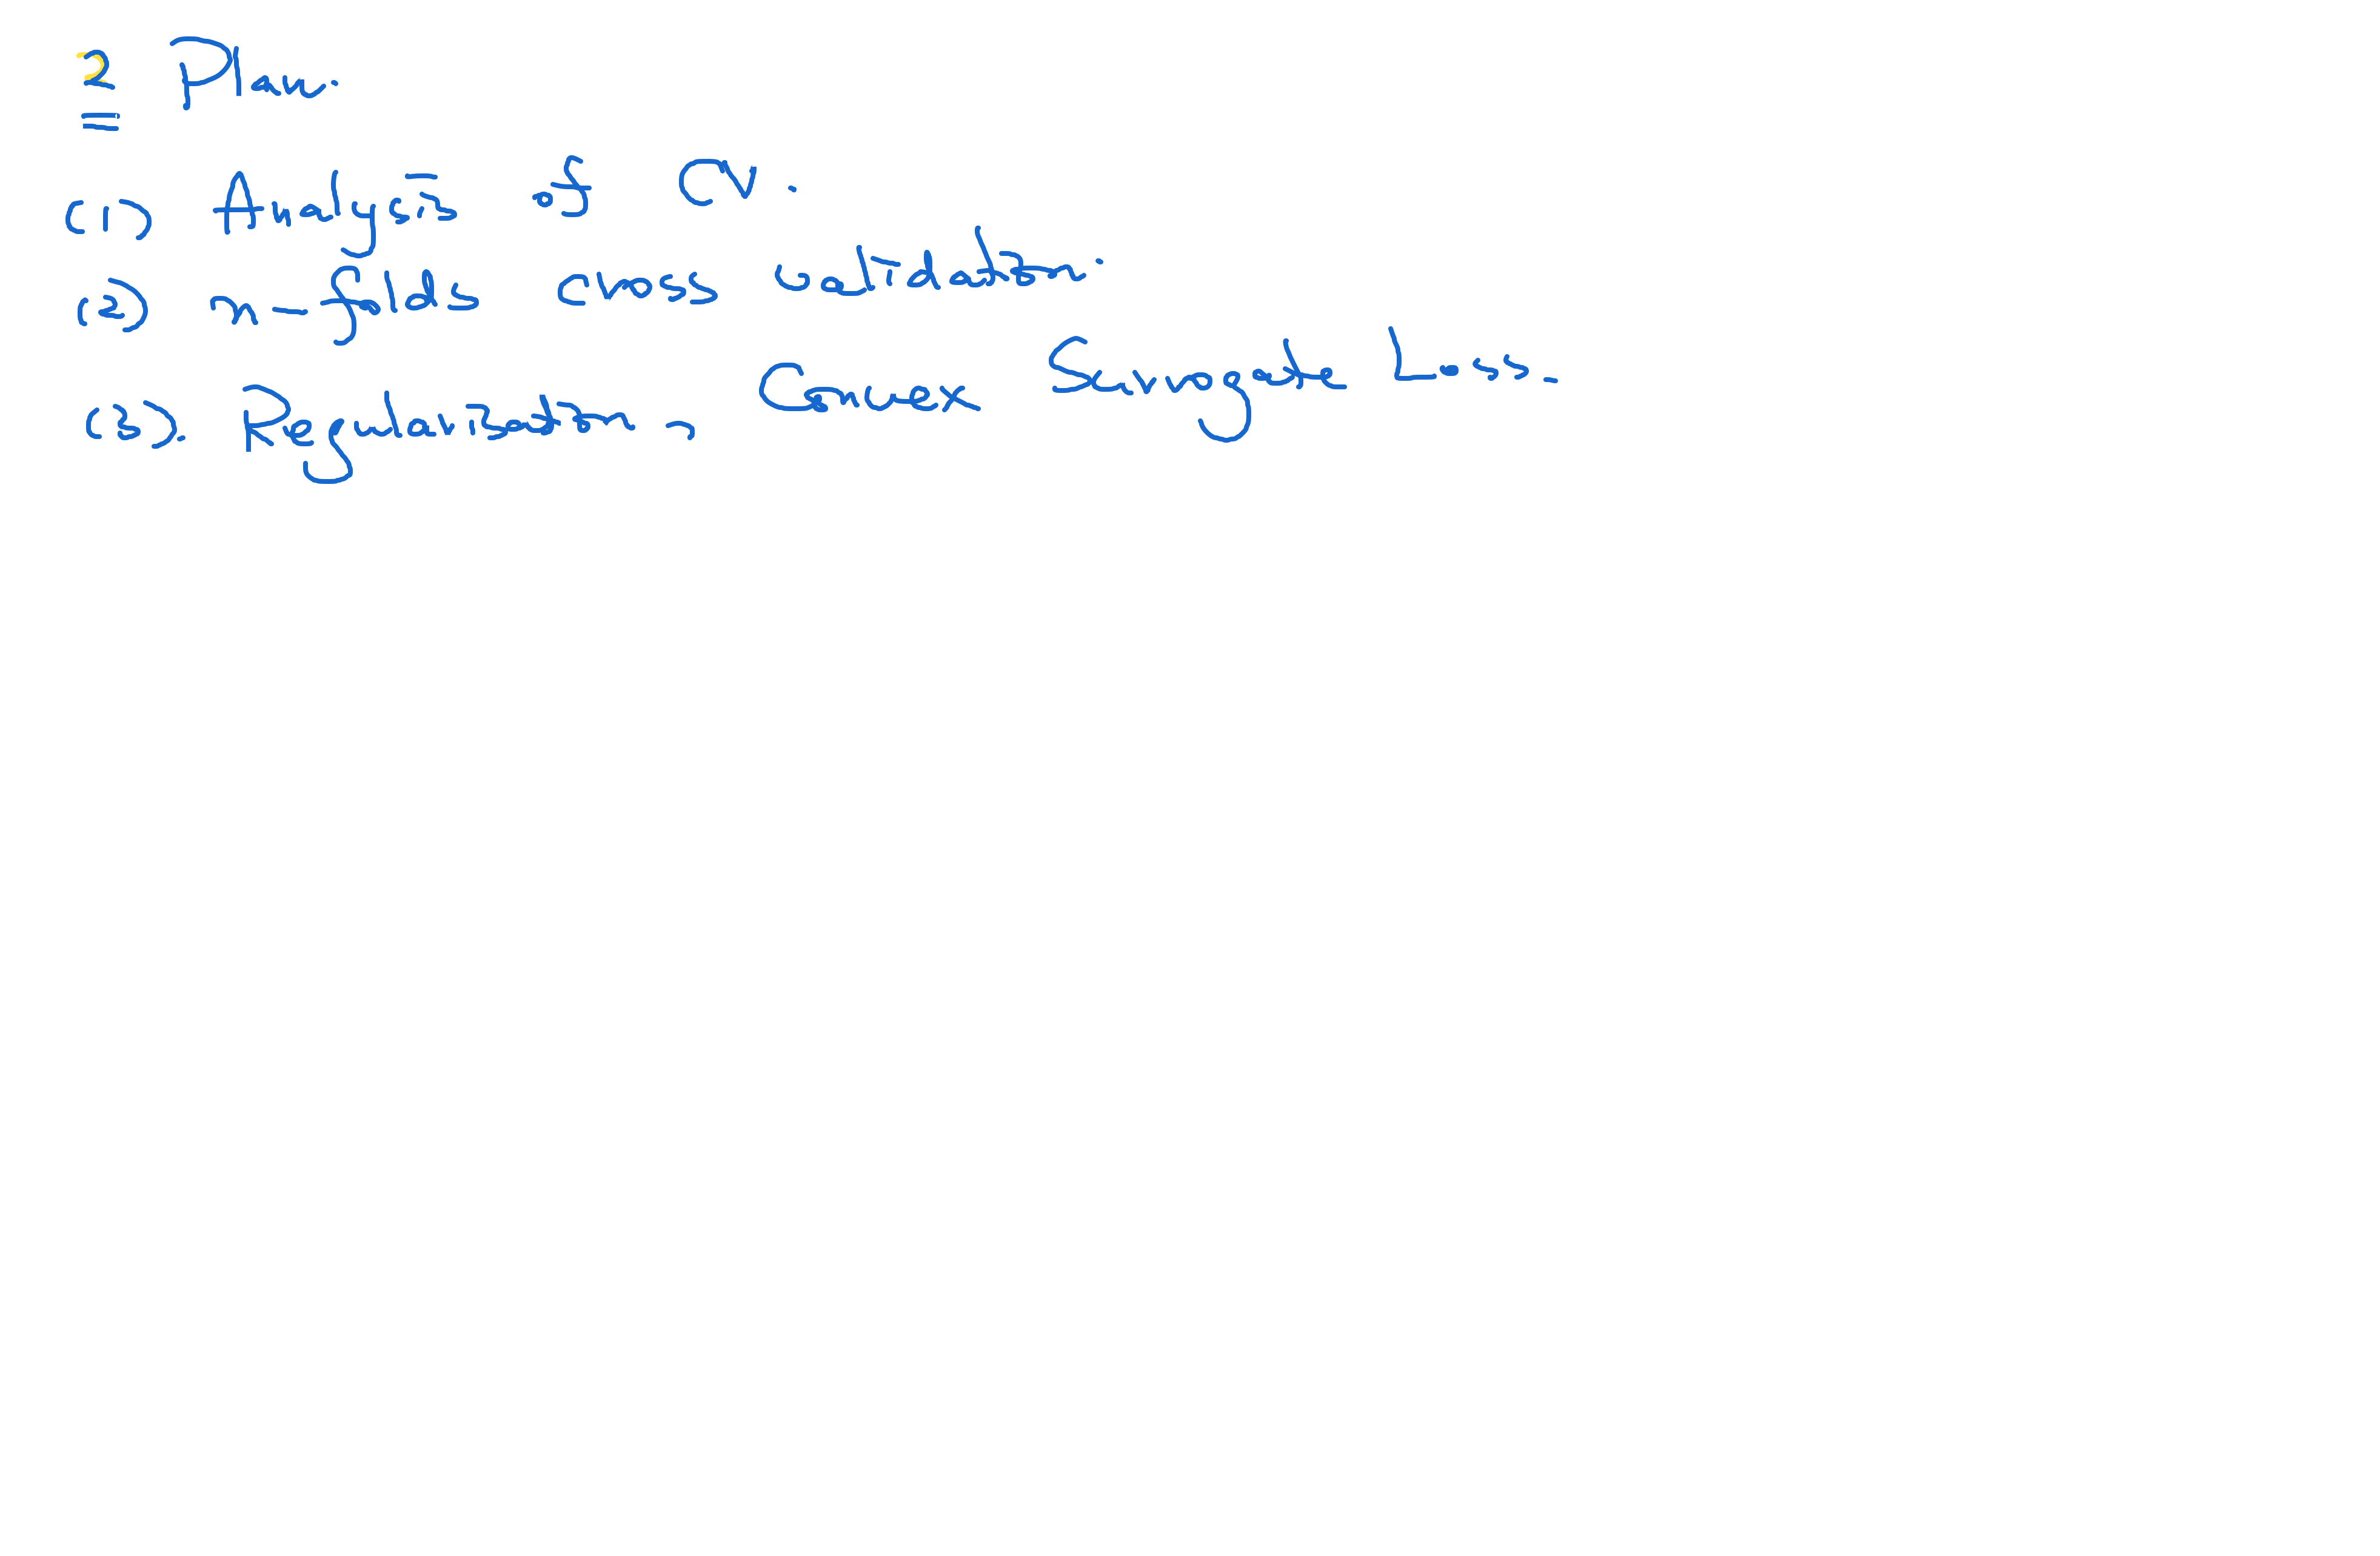 2 Plan.
(1) Analysis of CV.
(2) n-folds cross validation.
(3). Regularization, Convex Surrogate Loss.